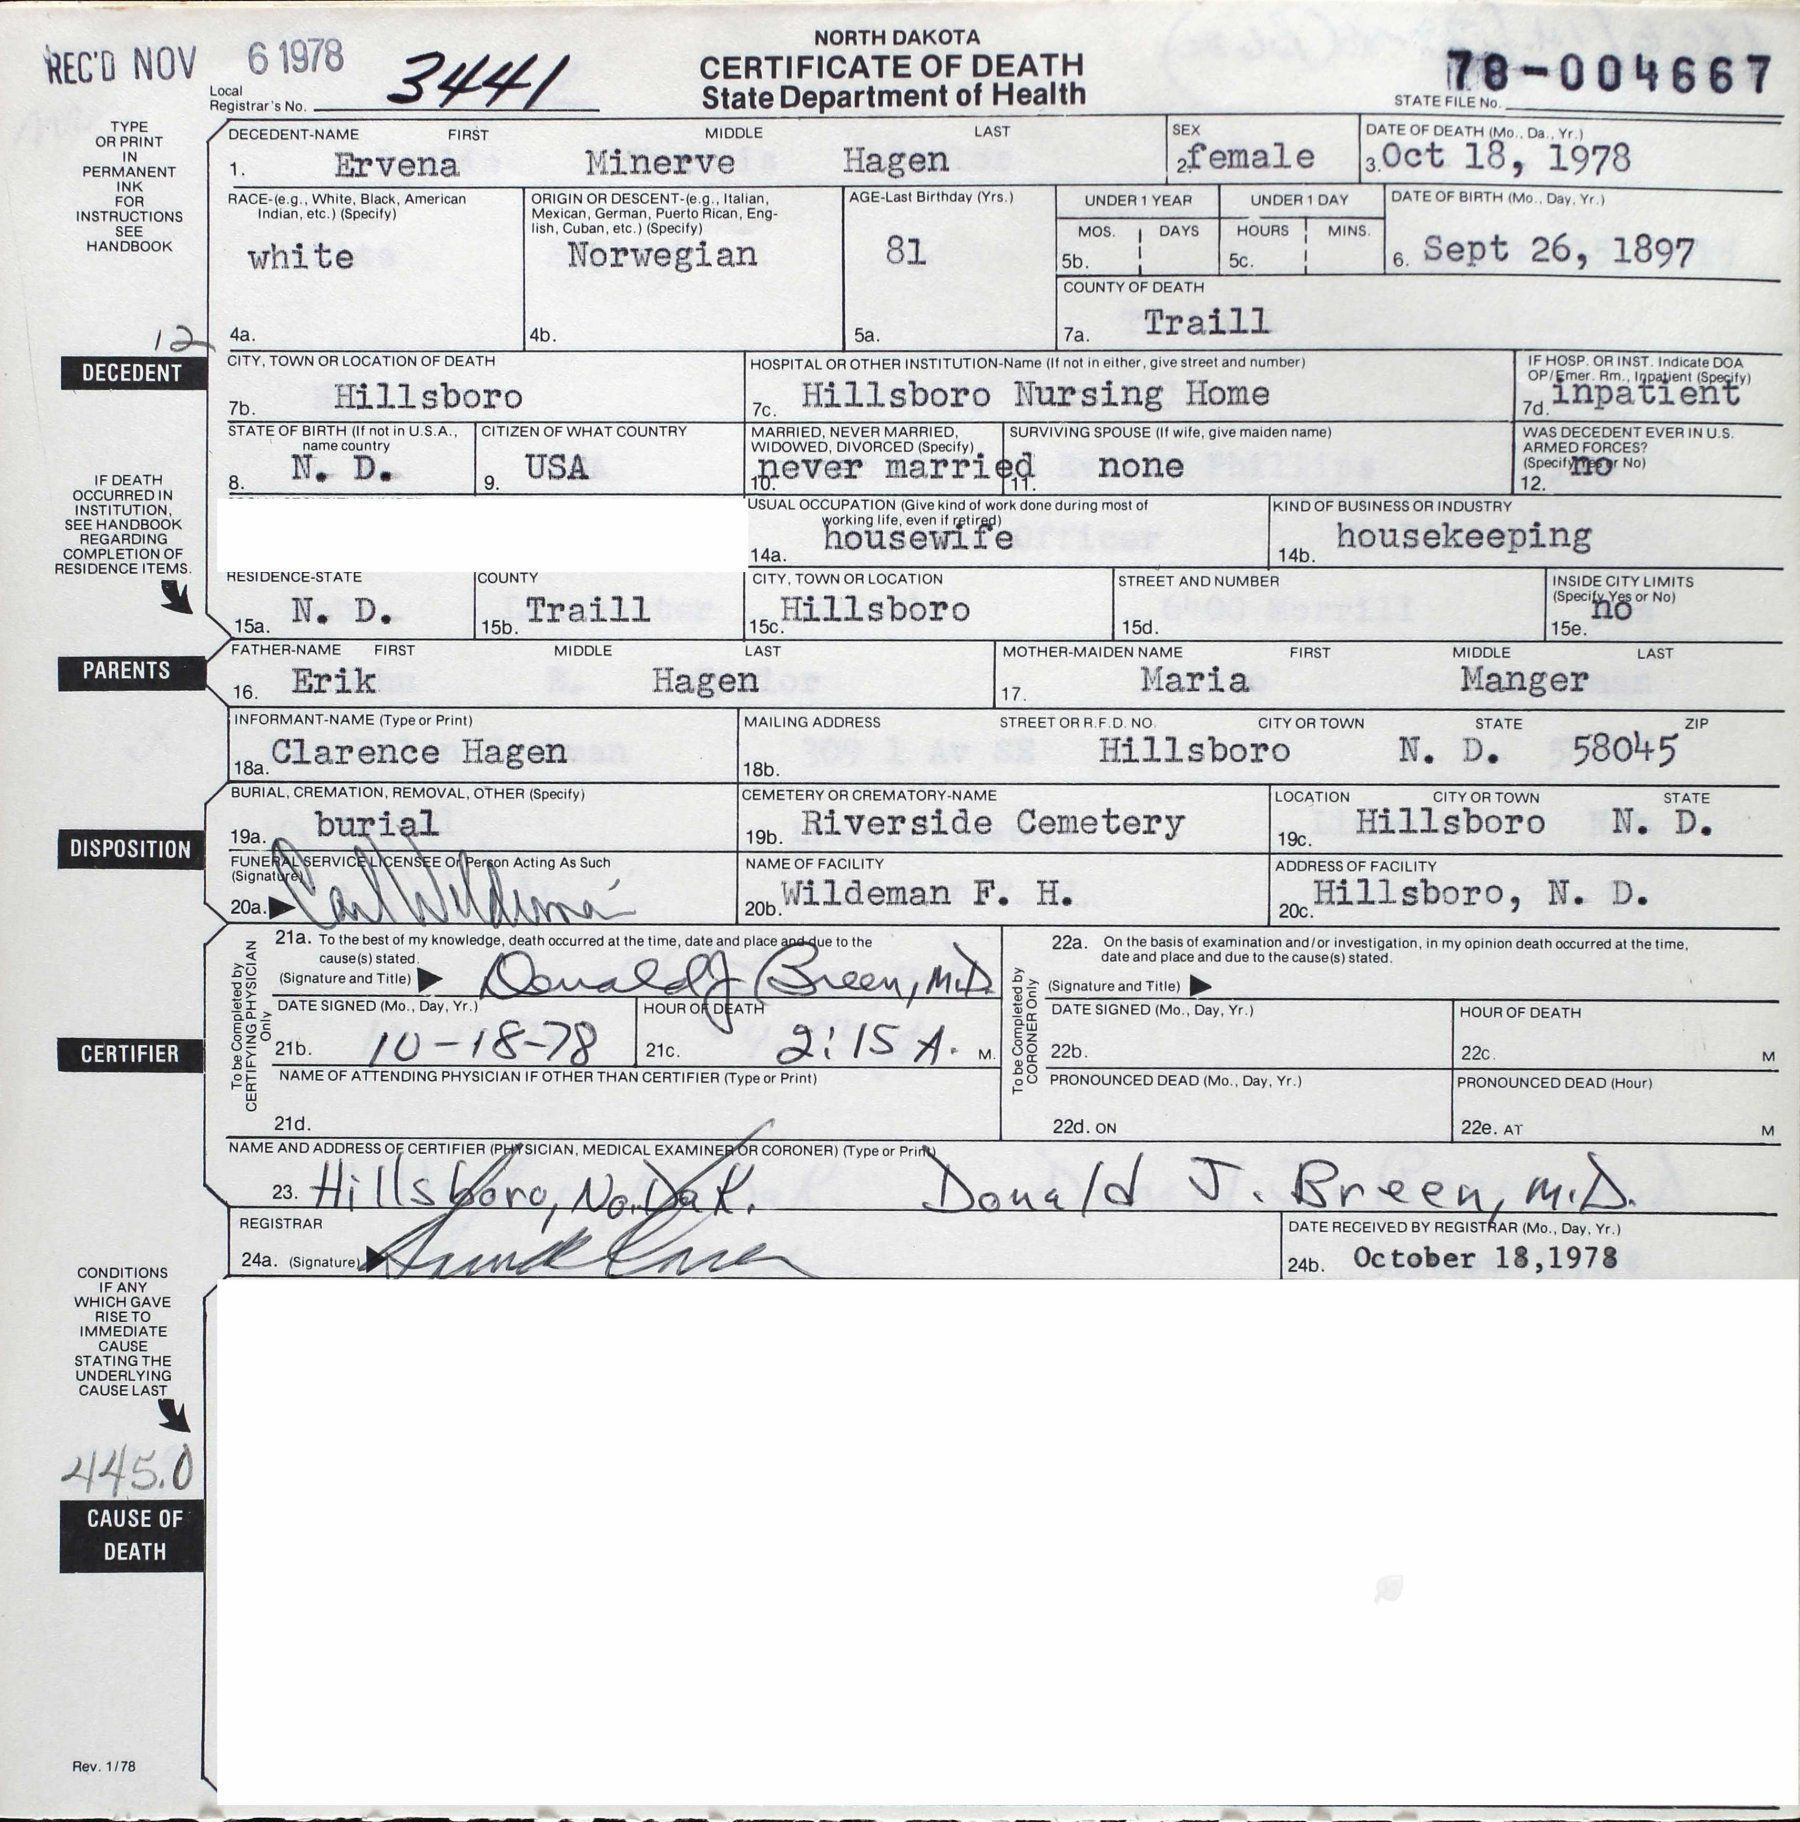 REC'D NOV 6 1978
Local Registrar's No. 3441
NORTH DAKOTA
CERTIFICATE OF DEATH
State Department of Health
78-004667
STATE FILE No.
TYPE
OR PRINT
IN
PERMANENT
INK
FOR
INSTRUCTIONS
SEE
HANDBOOK
DECEDENT-NAME FIRST MIDDLE LAST
1. Ervena Minerve Hagen
SEX
2. female
DATE OF DEATH (Mo., Da., Yr.)
3. Oct 18, 1978
RACE-(e.g., White, Black, American
Indian, etc.) (Specify)
white
4a.
ORIGIN OR DESCENT-(e.g., Italian,
Mexican, German, Puerto Rican, Eng-
lish, Cuban, etc.) (Specify)
Norwegian
4b.
AGE-Last Birthday (Yrs.)
81
5a.
UNDER 1 YEAR
MOS. DAYS
5b.
UNDER 1 DAY
HOURS MINS.
5c.
DATE OF BIRTH (Mo., Day, Yr.)
6. Sept 26, 1897
COUNTY OF DEATH
7a. Traill
12
DECEDENT
CITY, TOWN OR LOCATION OF DEATH
7b. Hillsboro
HOSPITAL OR OTHER INSTITUTION-Name (If not in either, give street and number)
7c. Hillsboro Nursing Home
IF HOSP. OR INST. Indicate DOA
OP/Emer. Rm., Inpatient (Specify)
7d. inpatient
STATE OF BIRTH (If not in U.S.A.,
name country
8. N. D.
CITIZEN OF WHAT COUNTRY
9. USA
MARRIED, NEVER MARRIED,
WIDOWED, DIVORCED (Specify)
10. never married
SURVIVING SPOUSE (If wife, give maiden name)
11. none
WAS DECEDENT EVER IN U.S.
ARMED FORCES?
(Specify Yes or No)
12. no
IF DEATH
OCCURRED IN
INSTITUTION,
SEE HANDBOOK
REGARDING
COMPLETION OF
RESIDENCE ITEMS.
USUAL OCCUPATION (Give kind of work done during most of
working life, even if retired)
14a. housewife
KIND OF BUSINESS OR INDUSTRY
14b. housekeeping
RESIDENCE-STATE
15a. N. D.
COUNTY
15b. Traill
CITY, TOWN OR LOCATION
15c. Hillsboro
STREET AND NUMBER
15d.
INSIDE CITY LIMITS
(Specify Yes or No)
15e. no
PARENTS
FATHER-NAME FIRST MIDDLE LAST
16. Erik Hagen
MOTHER-MAIDEN NAME FIRST MIDDLE LAST
17. Maria Manger
INFORMANT-NAME (Type or Print)
18a. Clarence Hagen
MAILING ADDRESS STREET OR R.F.D. NO. CITY OR TOWN STATE ZIP
18b. Hillsboro N. D. 58045
DISPOSITION
BURIAL, CREMATION, REMOVAL, OTHER (Specify)
19a. burial
CEMETERY OR CREMATORY-NAME
19b. Riverside Cemetery
LOCATION CITY OR TOWN STATE
19c. Hillsboro N. D.
FUNERAL SERVICE LICENSEE Or Person Acting As Such
(Signature)
20a. Carl Wildeman
NAME OF FACILITY
20b. Wildeman F. H.
ADDRESS OF FACILITY
20c. Hillsboro, N. D.
CERTIFIER
To be Completed by
CERTIFYING PHYSICIAN
Only
21a. To the best of my knowledge, death occurred at the time, date and place and due to the
cause(s) stated.
(Signature and Title) Donald J Breen, M.D.
DATE SIGNED (Mo., Day, Yr.)
21b. 10-18-78
HOUR OF DEATH
21c. 2:15 A. M.
NAME OF ATTENDING PHYSICIAN IF OTHER THAN CERTIFIER (Type or Print)
21d.
To be Completed by
CORONER Only
22a. On the basis of examination and/or investigation, in my opinion death occurred at the time,
date and place and due to the cause(s) stated.
(Signature and Title)
DATE SIGNED (Mo., Day, Yr.)
22b.
HOUR OF DEATH
22c. M
PRONOUNCED DEAD (Mo., Day, Yr.)
22d. ON
PRONOUNCED DEAD (Hour)
22e. AT M
NAME AND ADDRESS OF CERTIFIER (PHYSICIAN, MEDICAL EXAMINER OR CORONER) (Type or Print)
23. Hillsboro, No. Dak. Donald J. Breen, M.D.
REGISTRAR
24a. (Signature)
DATE RECEIVED BY REGISTRAR (Mo., Day, Yr.)
24b. October 18,1978
CONDITIONS
IF ANY
WHICH GAVE
RISE TO
IMMEDIATE
CAUSE
STATING THE
UNDERLYING
CAUSE LAST
445.0
CAUSE OF
DEATH
Rev. 1/78